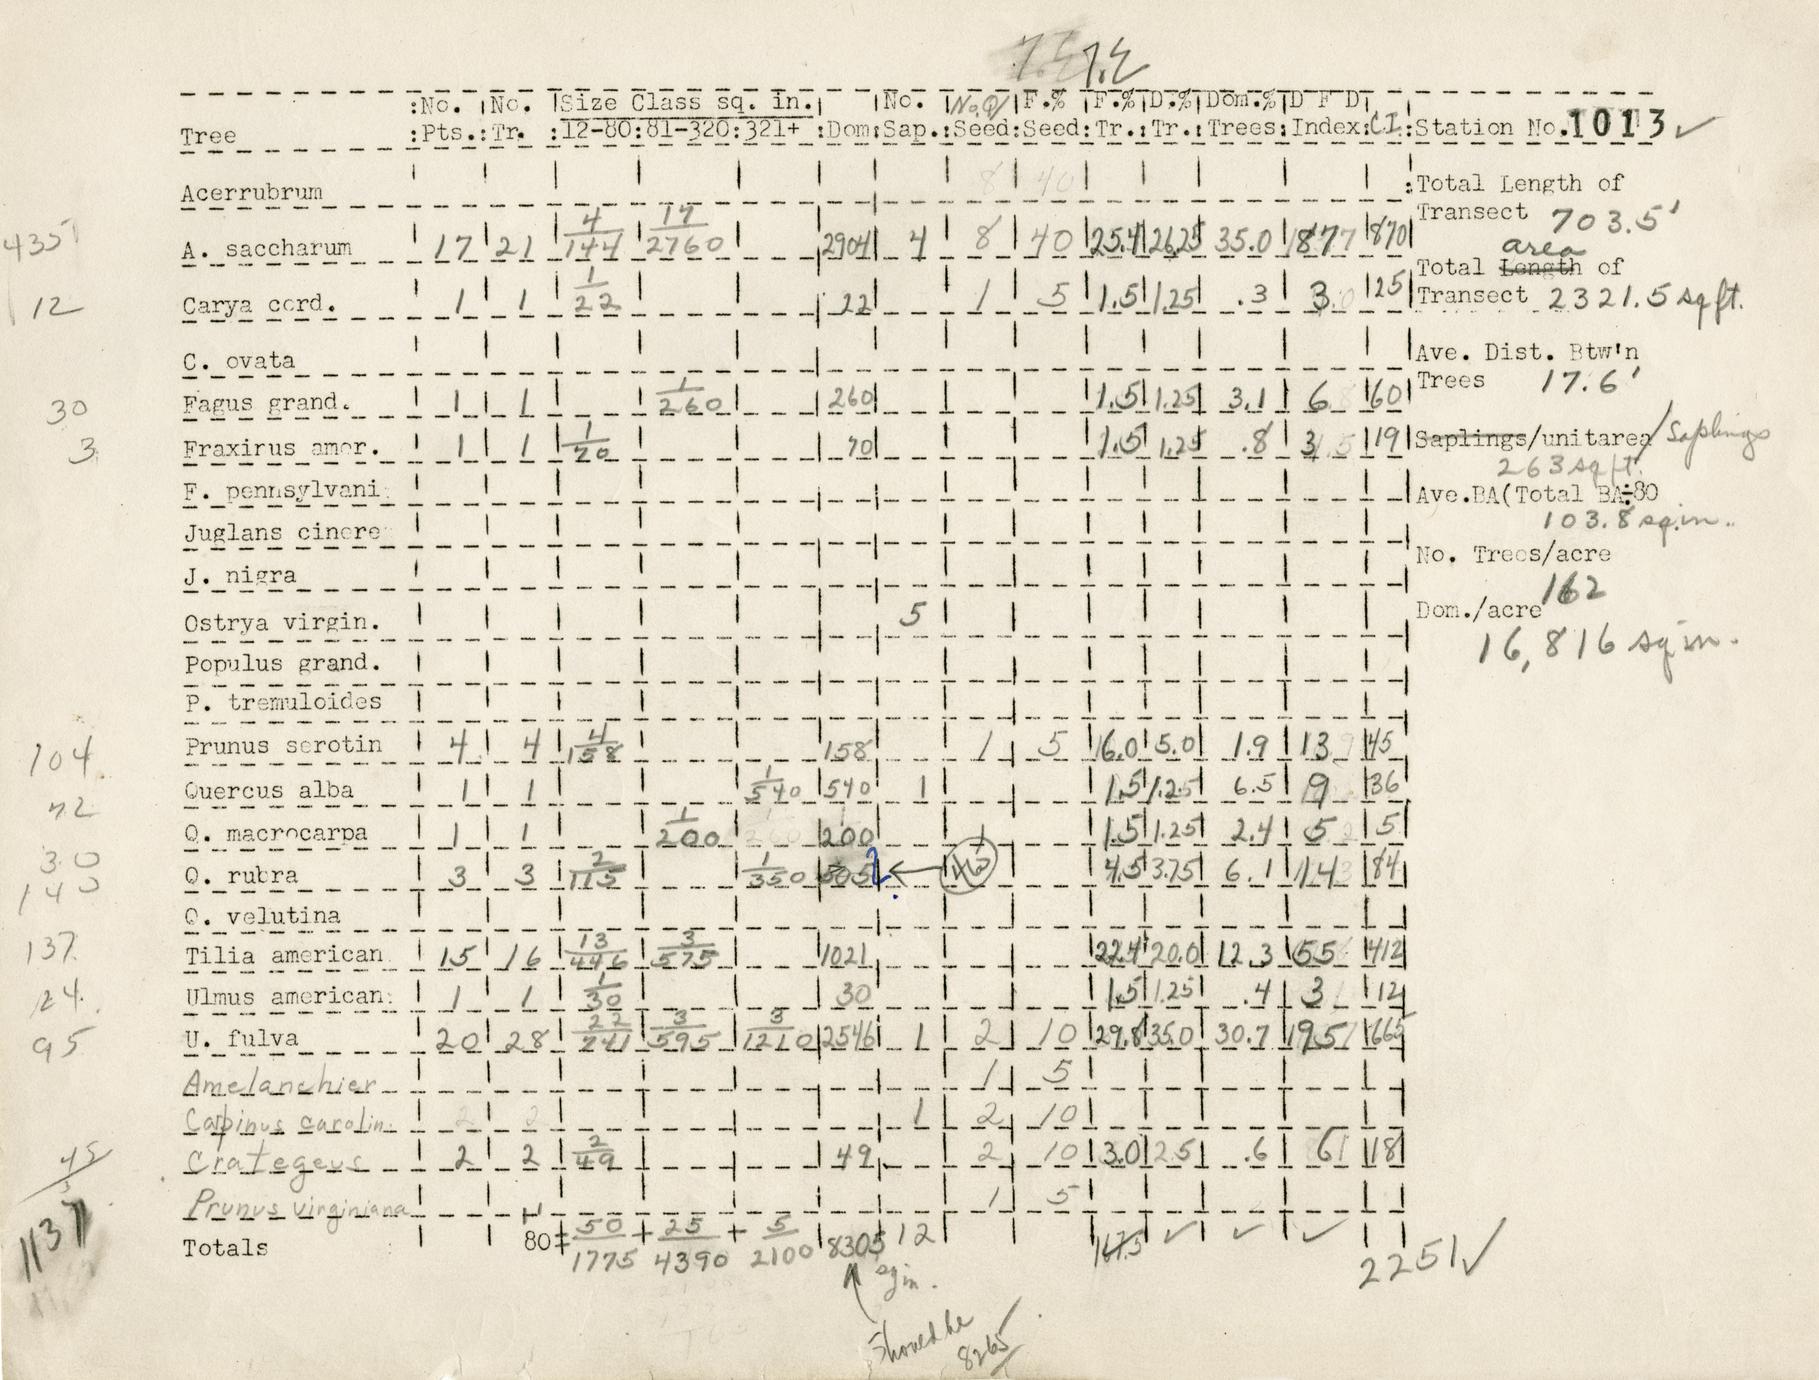 :No. :No. Size Class sq. in. No. No. Q F.% F.% D.% Dom.% D F D
Tree :Pts.:Tr. :12-80:81-320:321+ :Dom:Sap.:Seed:Seed:Tr.:Tr.:Trees:Index:C.I.:Station No. 1013 ✓
Acerrubrum 8 40
:Total Length of
Transect 703.5'
435 A. saccharum 17 21 4/144 17/2760 2904 4 8 40 25.4 26.25 35.0 877 870
area
Total Length of
Transect 2321.5 sq ft.
12 Carya cord. 1 1 1/22 22 1 5 1.5 1.25 .3 3.0 25
C. ovata
Ave. Dist. Btw'n
Trees 17.6'
30 Fagus grand. 1 1 1/260 260 1.5 1.25 3.1 6 60
3 Fraxirus amer. 1 1 1/70 70 1.5 1.25 .8 3.5 19
Saplings/unitarea/Saplings
263 sq ft.
F. pennsylvani
Ave.BA(Total BA÷80
103.8 sq.in.
Juglans cinere
J. nigra
No. Trees/acre
162
Ostrya virgin. 5
Dom./acre
16,816 sq in.
Populus grand.
P. tremuloides
104 Prunus serotin 4 4 4/158 158 1 5 6.0 5.0 1.9 13 45
72 Quercus alba 1 1 1/540 540 1 1.5 1.25 6.5 9 36
30 Q. macrocarpa 1 1 1/200 200 1.5 1.25 2.4 5 5
140 Q. rubra 3 3 2/115 1/350 505 ? ← 4.5 3.75 6.1 14 84
Q. velutina
137 Tilia american 15 16 13/446 3/575 1021 22.4 20.0 12.3 55 412
24 Ulmus american 1 1 1/30 30 1.5 1.25 .4 3 12
95 U. fulva 20 28 22/741 3/595 3/1210 2546 1 2 10 29.8 35.0 30.7 95 665
Amelanchier 1 5
Carpinus carolin. 2 2 1 2 10
45 Crategeus 2 2 2/49 49 2 10 3.0 2.5 .6 6 18
Prunus virginiana 1 5
1137 Totals 80= 50/1775 + 25/4390 + 5/2100 8305 12 167.5 ✓ ✓ ✓ 2251 ✓
sq in.
Should be
8265